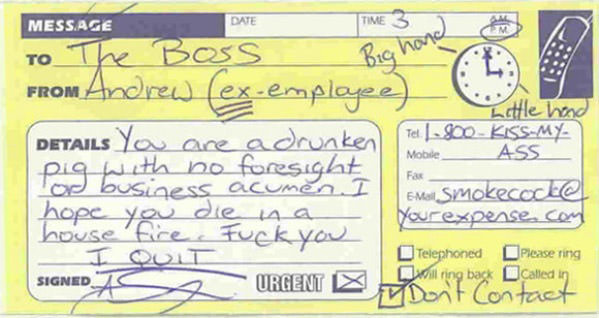 MESSAGE DATE TIME 3 A.M. P.M.
TO The Boss
Big hand
FROM Andrew (ex-employee)
Little hand
DETAILS You are a drunken
pig with no foresight
or business acumen. I
hope you die in a
house fire. Fuck you
I QUIT
SIGNED
URGENT
Tel. 1-800-KISS-MY-
Mobile ASS
Fax
E-Mail smokecock@
yourexpense.com
Telephoned Please ring
Will ring back Called in
Don't Contact